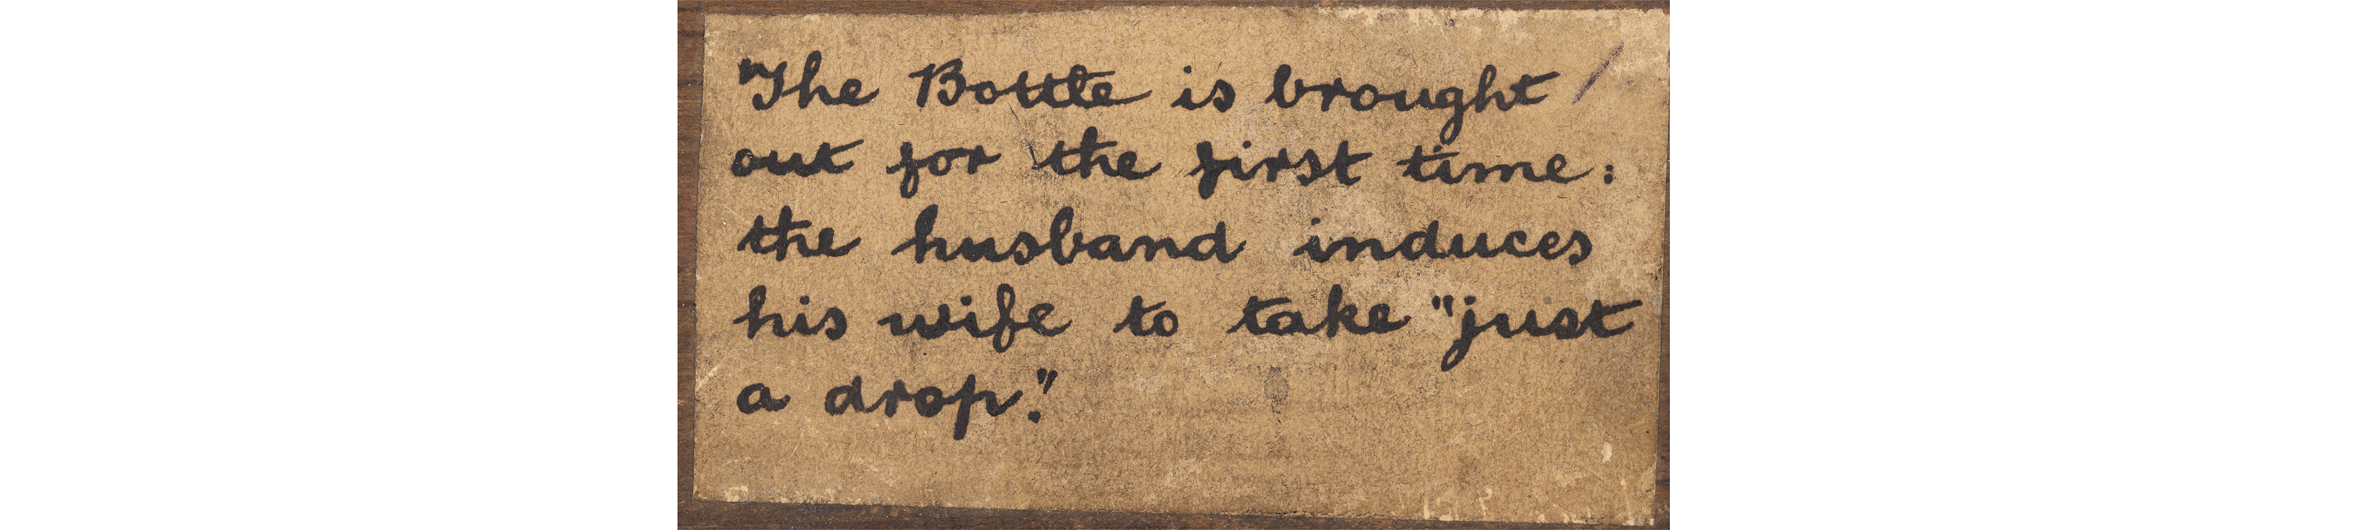 "The Bottle is brought
out for the first time:
the husband induces
his wife to take "just
a drop."